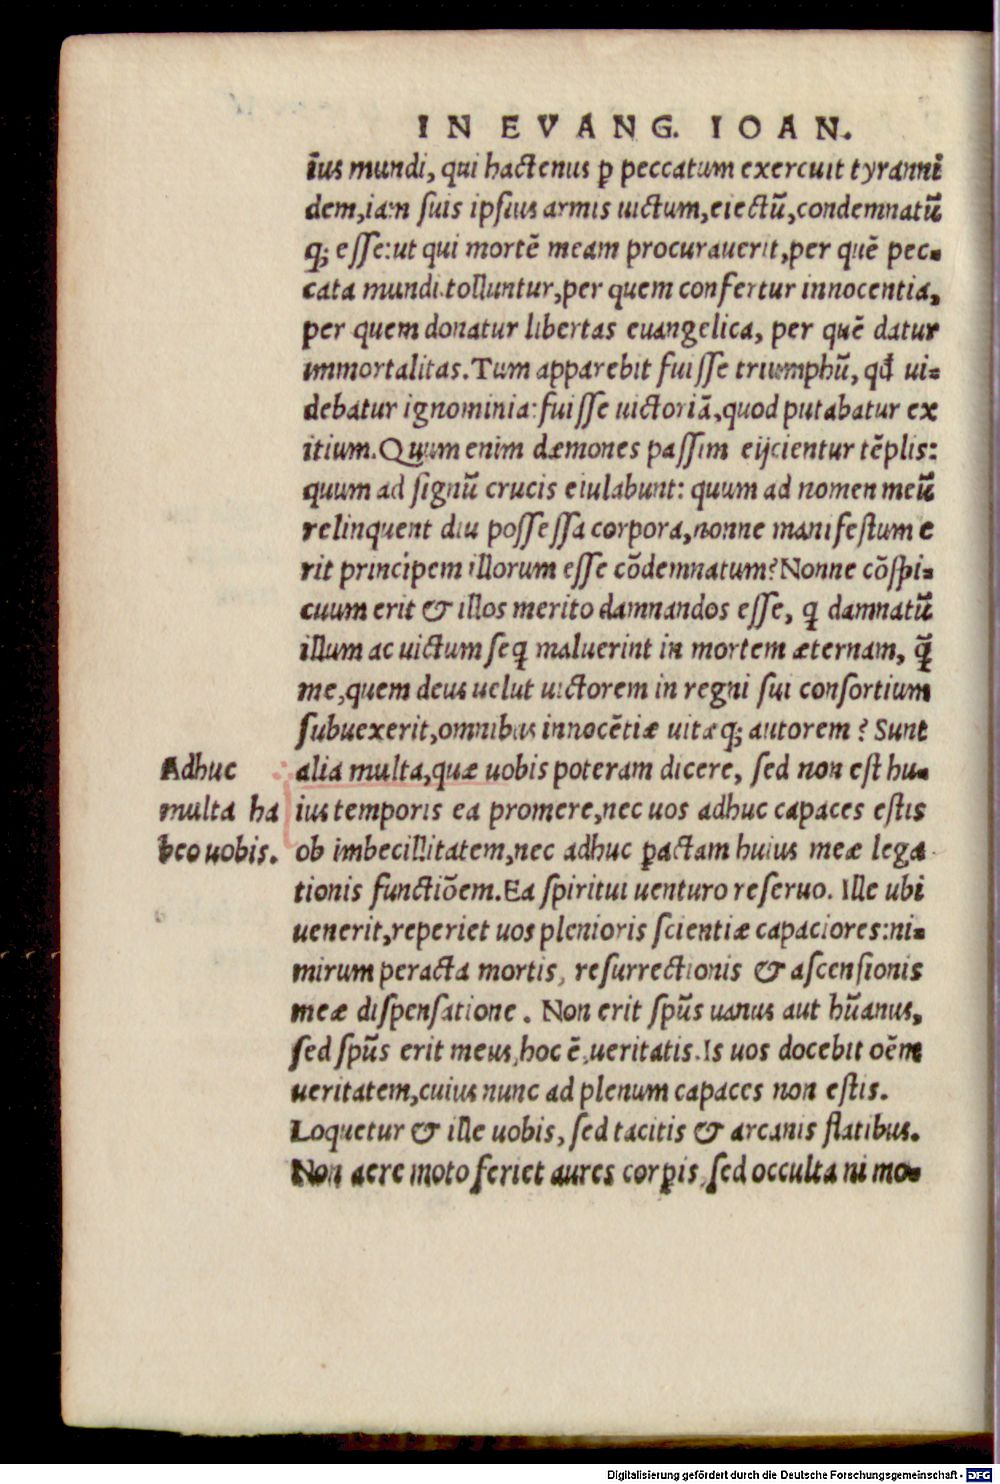 IN EVANG. IOAN.
i͂us mundi, qui hactenus ꝑ peccatum exercuit tyranni
dem, iam suis ipsius armis uictum, eiectũ, condemnatũ
q; esse: ut qui mortẽ meam procurauerit, per quẽ pec-
cata mundi tolluntur, per quem confertur innocentia,
per quem donatur libertas euangelica, per quẽ datur
immortalitas. Tum apparebit fuisse triumphũ, qđ ui-
debatur ignominia: fuisse uictoriã, quod putabatur ex
itium. Quum enim dæmones passim eijcientur tẽplis:
quum ad signũ crucis eiulabunt: quum ad nomen meũ
relinquent diu possessa corpora, nonne manifestum e
rit principem illorum esse cõdemnatum? Nonne cõspi-
cuum erit & illos merito damnandos esse, q damnatũ
illum ac uictum seq maluerint in mortem æternam, q̃
me, quem deus uelut uictorem in regni sui consortium
subuexerit, omnibus innocẽtiæ uitæq; autorem? Sunt
Adhuc
multa ha
beo uobis.
alia multa, quæ uobis poteram dicere, sed non est hu-
ius temporis ea promere, nec uos adhuc capaces estis
ob imbecillitatem, nec adhuc ꝑactam huius meæ lega
tionis functiõem. Ea spiritui uenturo reseruo. Ille ubi
uenerit, reperiet uos plenioris scientiæ capaciores: ni-
mirum peracta mortis, resurrectionis & ascensionis
meæ dispensatione. Non erit spũs uanus aut hũanus,
sed spũs erit meus, hoc ẽ, ueritatis. Is uos docebit oẽm
ueritatem, cuius nunc ad plenum capaces non estis.
Loquetur & ille uobis, sed tacitis & arcanis flatibus.
Non aere moto feriet aures corꝑis, sed occulta ni mo-
Digitalisierung gefördert durch die Deutsche Forschungsgemeinschaft - DFG